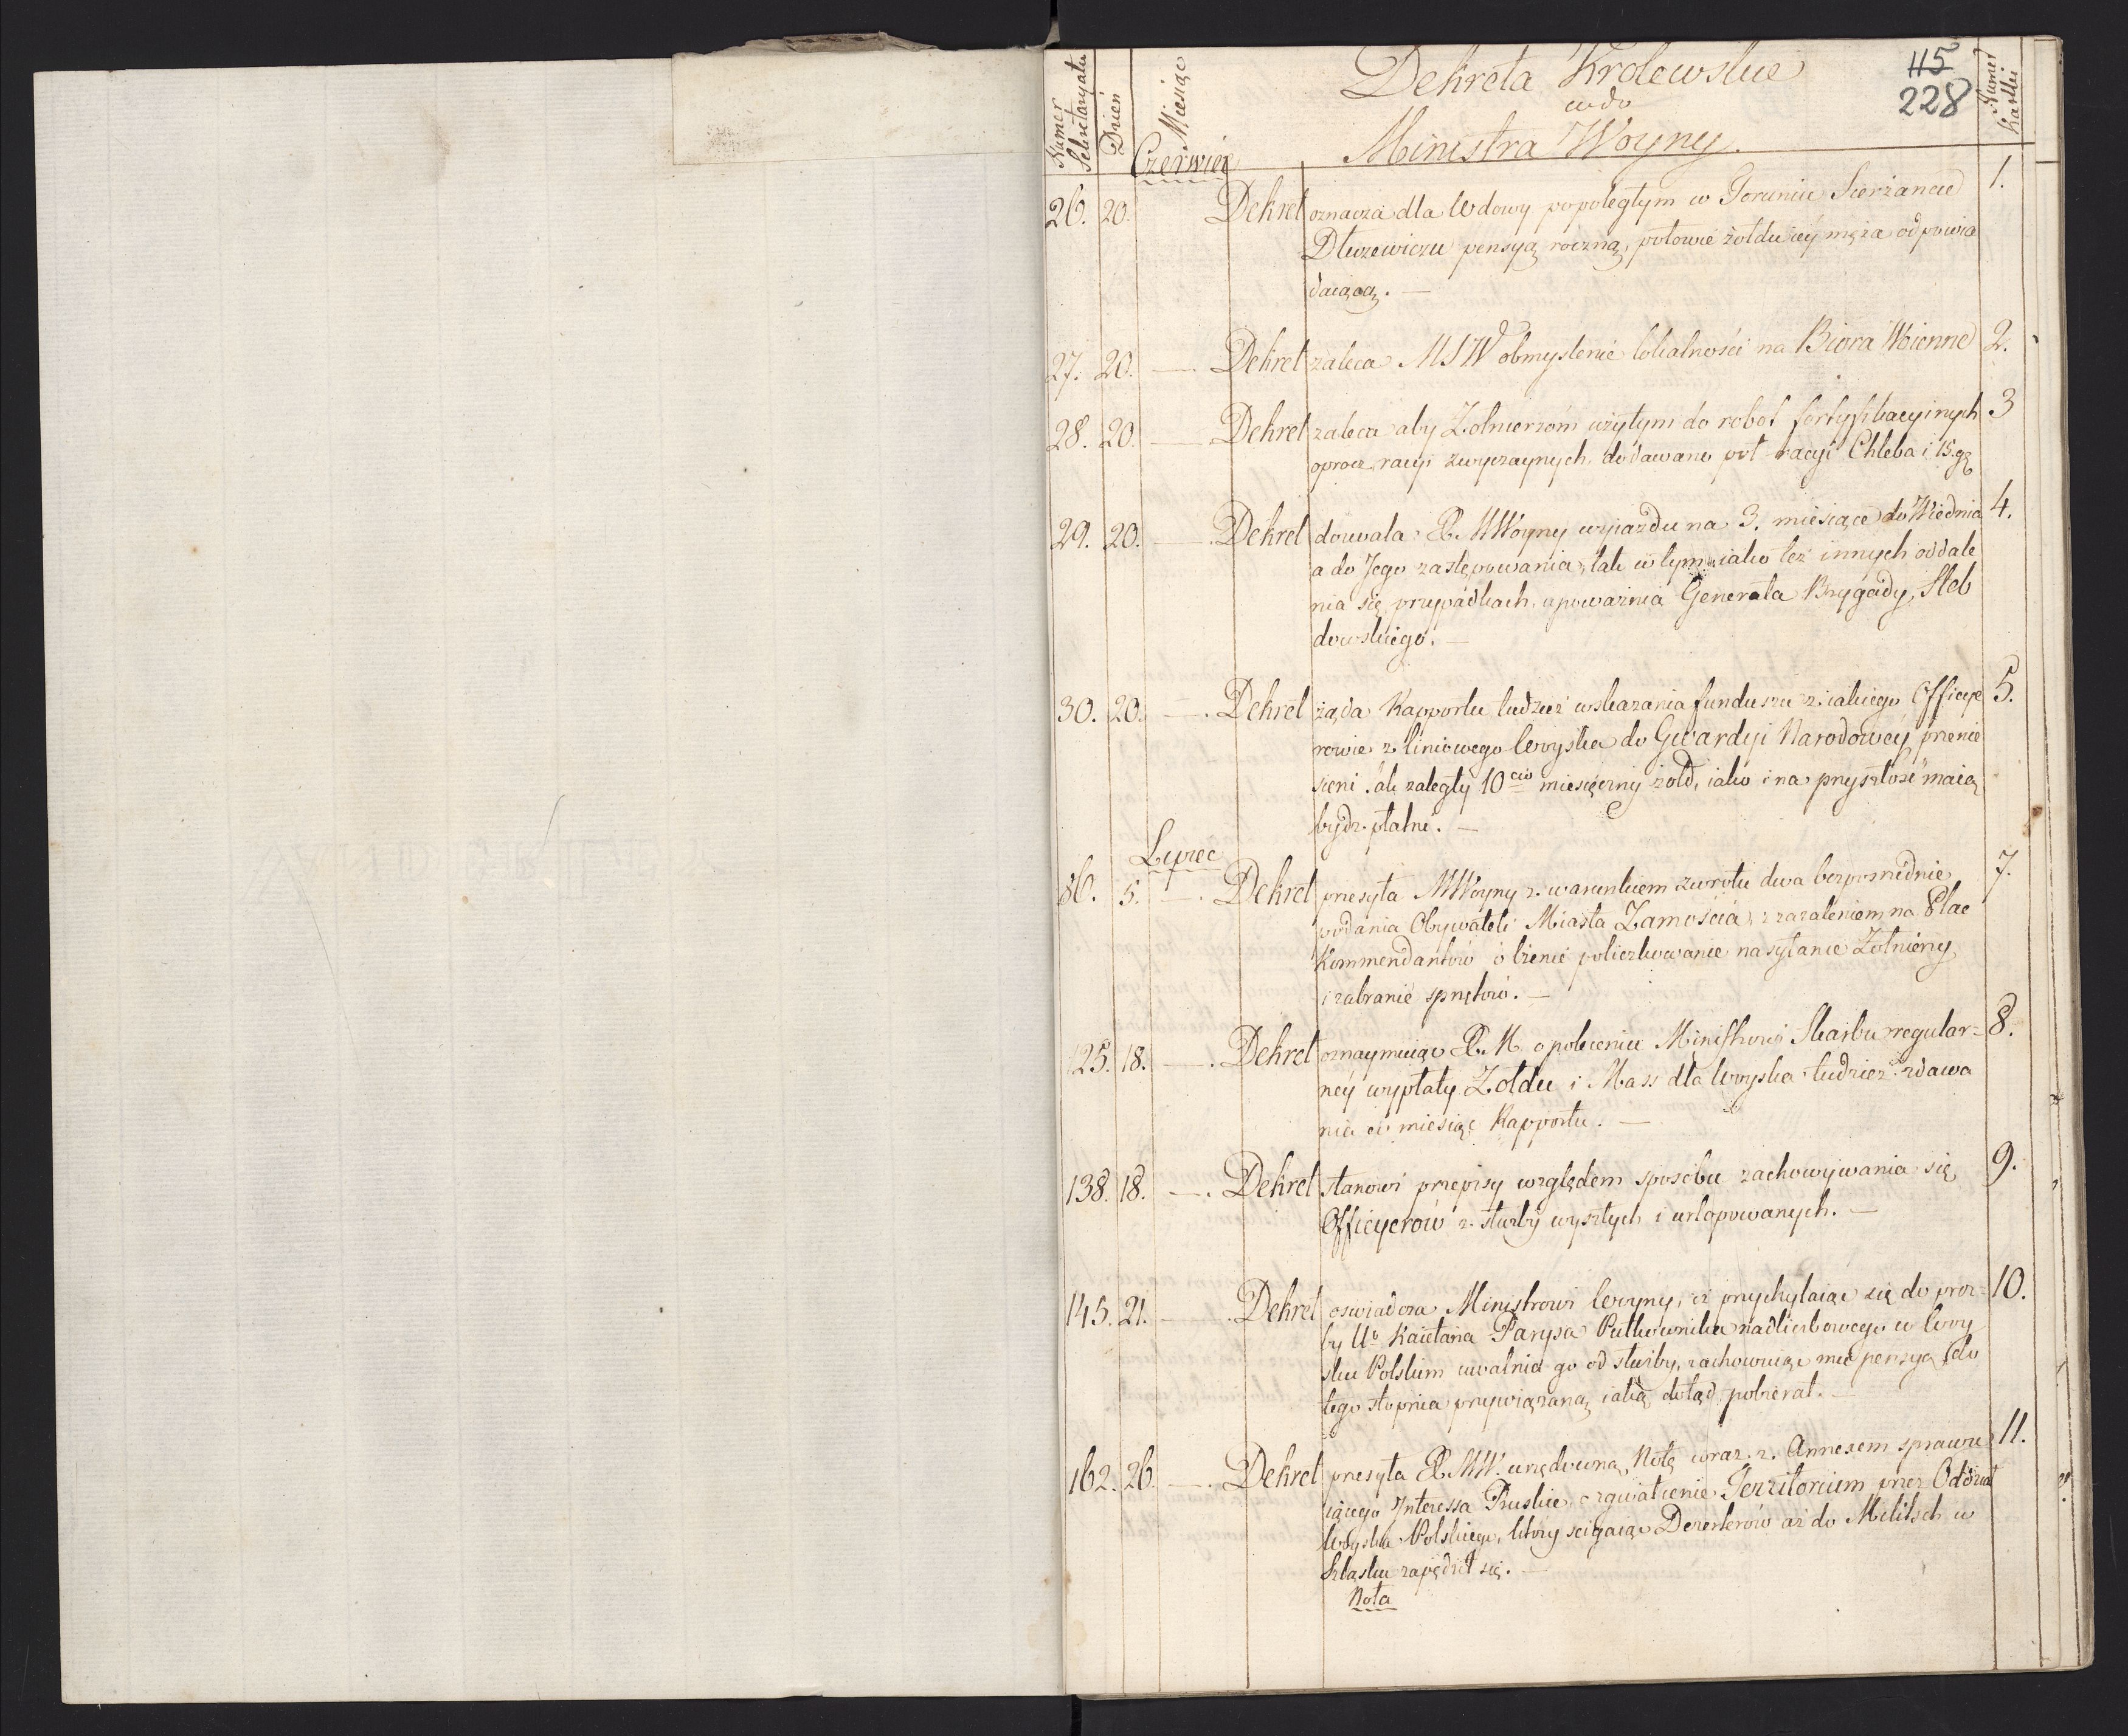 Numer Sekretaryatu
Dzień
Miesiąc
Dekreta Krolewskie
co do
Ministra Woyny.
115
228
Numer Kartki
Czerwiec
26. 20. Dekret oznacza dla Wdowy po poległym w Toruniu Sierżancie 1.
Dłuzewiczu pensyą roczną, połowie żołdu iéy męża odpowia
daiącą. —
27. 20. — Dekret zaleca MSW obmyslenie lokalności na Biora Woienne 2.
28. 20. — Dekret zaleca aby Żołnierzom użytym do robot fortyfikacyinych 3
oprocz racyi zwyczaynych dodawano poł racyi Chleba i 15. gr
29. 20. — Dekret dozwala X. MWoyny wyiazdu na 3. miesiące do Wiednia 4.
a do Jego zastępowania, tak w tym iako też innych oddale
nia się przypadkach, upoważnia Generała Brygady, Heb
dowskiego. —
30. 20. — Dekret żąda Rapportu tudzież wskazania funduszu z iakiego Officye 5.
rowie z liniowego Woyska do Gwardyi Narodowéy przenie
sieni, tak zaległy 10cio miesięczny żołd, iako i na przyszłosć maią
bydz płatni. —
Lipiec
86. 5. — Dekret przesyła MWoyny z warunkiem zwrotu dwa bezposrednie 7.
podania Obywateli Miasta Zamościa, z zażaleniem na Plac
Kommendantów o lżenie policzkowanie nasyłanie Żołnierzy
i zabranie sprzętów. —
125. 18. — Dekret oznaymuiąc X. M. o poleceniu Ministrowi Skarbu regular= 8.
néy wypłaty Żołdu i Mass dla Woyska tudzież zdawa
nia co miesiąc Rapportu. —
138. 18. — Dekret stanowi przepisy względem sposobu zachowywania się 9.
Officyerow z służby wyszłych i urlopowanych. —
145. 21. — Dekret oswiadcza Ministrowi Woyny, iż przychylaiąc się do proz= 10.
by Uo Kaietana Parysa Pułkownika nadliczbowego w Woy
sku Polskim uwalnia go od służby, zachowuiąc mu pensyą do
tego stopnia przywiązaną iaką dotąd pobierał. —
162. 26. — Dekret przesyła X. MW. urzędowną Notę wraz z Annexem sprawu 11.
iącego Interessa Pruskie, o zgwałcenie Territorium przez Oddział
Woyska Polskiego, ktory scigaiąc Dezerterów aż do Militsch w
Szląsku zapędził się. —
Nota